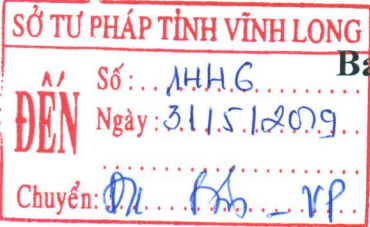 SỞ TƯ PHÁP TỈNH VĨNH LONG
Ba
ĐẾN
Số: 1446
Ngày: 31/5/2019
Chuyển: - VP